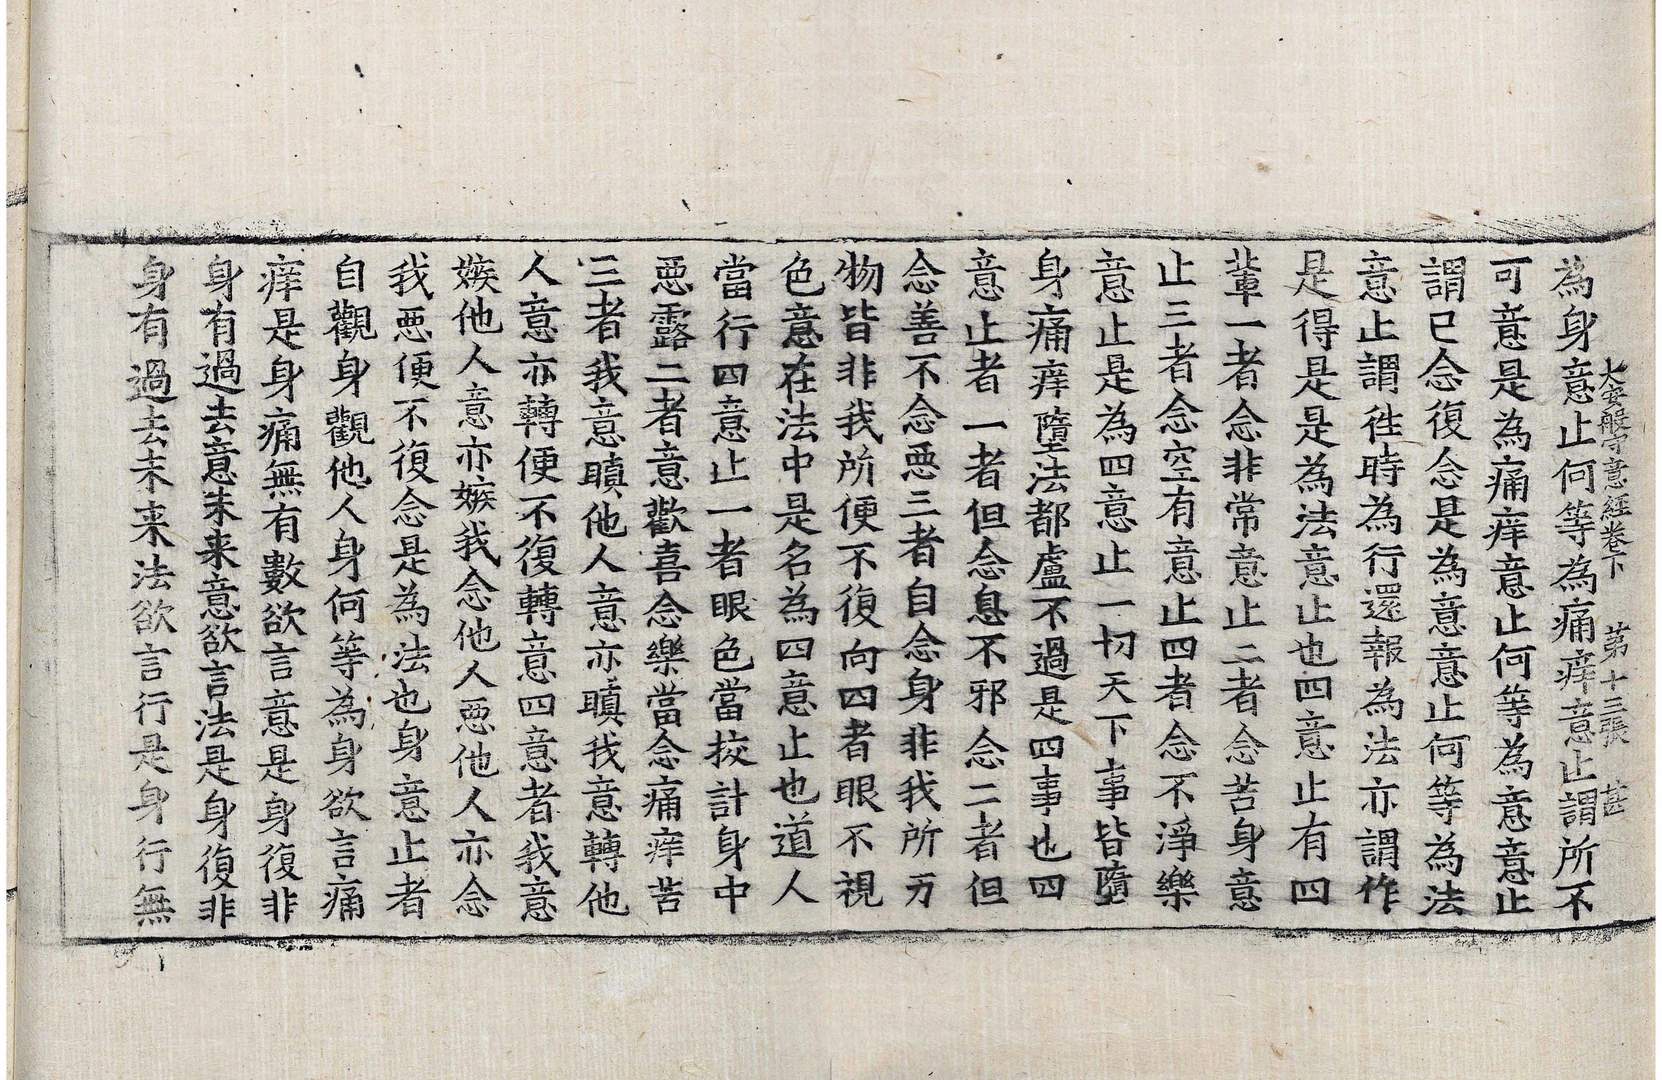 大安般守意經卷下 第十三張 甚
為身意止何等為痛痒意止謂所不
可意是為痛痒意止何等為意意止
謂已念復念是為意意止何等為法
意止謂徃時為行還報為法亦謂作
是得是是為法意止也四意止有四
輩一者念非常意止二者念苦身意
止三者念空有意止四者念不淨樂
意止是為四意止一切天下事皆墮
身痛痒墮法都盧不過是四事也四
意止者一者但念息不邪念二者但
念善不念惡三者自念身非我所万
物皆非我所便不復向四者眼不視
色意在法中是名為四意止也道人
當行四意止一者眼色當挍計身中
惡露二者意歡喜念樂當念痛痒苦
三者我意瞋他人意亦瞋我意轉他
人意亦轉便不復轉意四意者我意
嫉他人意亦嫉我念他人惡他人亦念
我惡便不復念是為法也身意止者
自觀身觀他人身何等為身欲言痛
痒是身痛無有數欲言意是身復非
身有過去意未来意欲言法是身復非
身有過去未来法欲言行是身行無